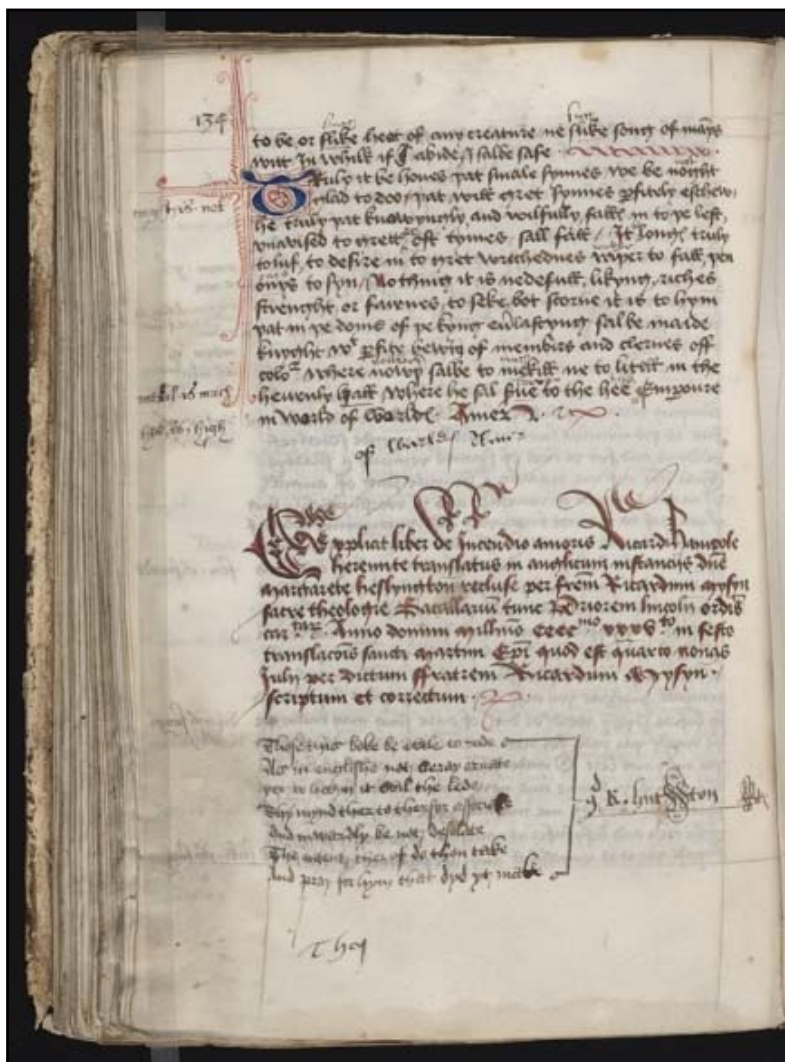 134
to be or slike heet of any creature ne slike song of mans
witt In whilk if I abide I salbe safe
Truly it be houes þat smale synnes we be noght
glad to doo þat will gret synnes pfitely eschew
might is not
he truly þat knowyngly and wilfully falls in to þe lest
vnawised to grett oft tymes sall fall It longs truly
to luf to desire in to gret wrechednes raþer to fall þen
onys to syn Nothing it is nedefull likyng riches
strenght or fairnes to seke bot scorne it is to hym
þat in þe doms of þe kyng euˡlastyng salbe maide
knyght wᵗ pfite bewty of membirs and clernes off
coloʳ where nowþ salbe to mekill ne to litell in the
mekil is mach
heuenly hall where he sal sue to the hee Empoure
hee is high
in world of worlds Amen
of worlds Amen
Explicit liber de Incendio amoris Ricardi Hampole
heremite translatus in anglicum instancijs dne
margarete heslyngton recluse per frem Ricardum mysyn
sacre theologie Bacallariu tunc Priorem lincoln ordis
carmtar Anno domini Millmo ccccmo xxxvto in festo
translacois sancti martini Epi quod est quarto nonas
Iulij per dictum ffratrem Ricardum Mysyn
scriptum et correctum
Thofe this boke be to rede
As in englishe not ornate
yet it the lede
Thy mynd ther to therfor
And inwardly be not desolate
The ther of do thou take
And pray for hym that dyd yt make
qd K. hutton
Thej